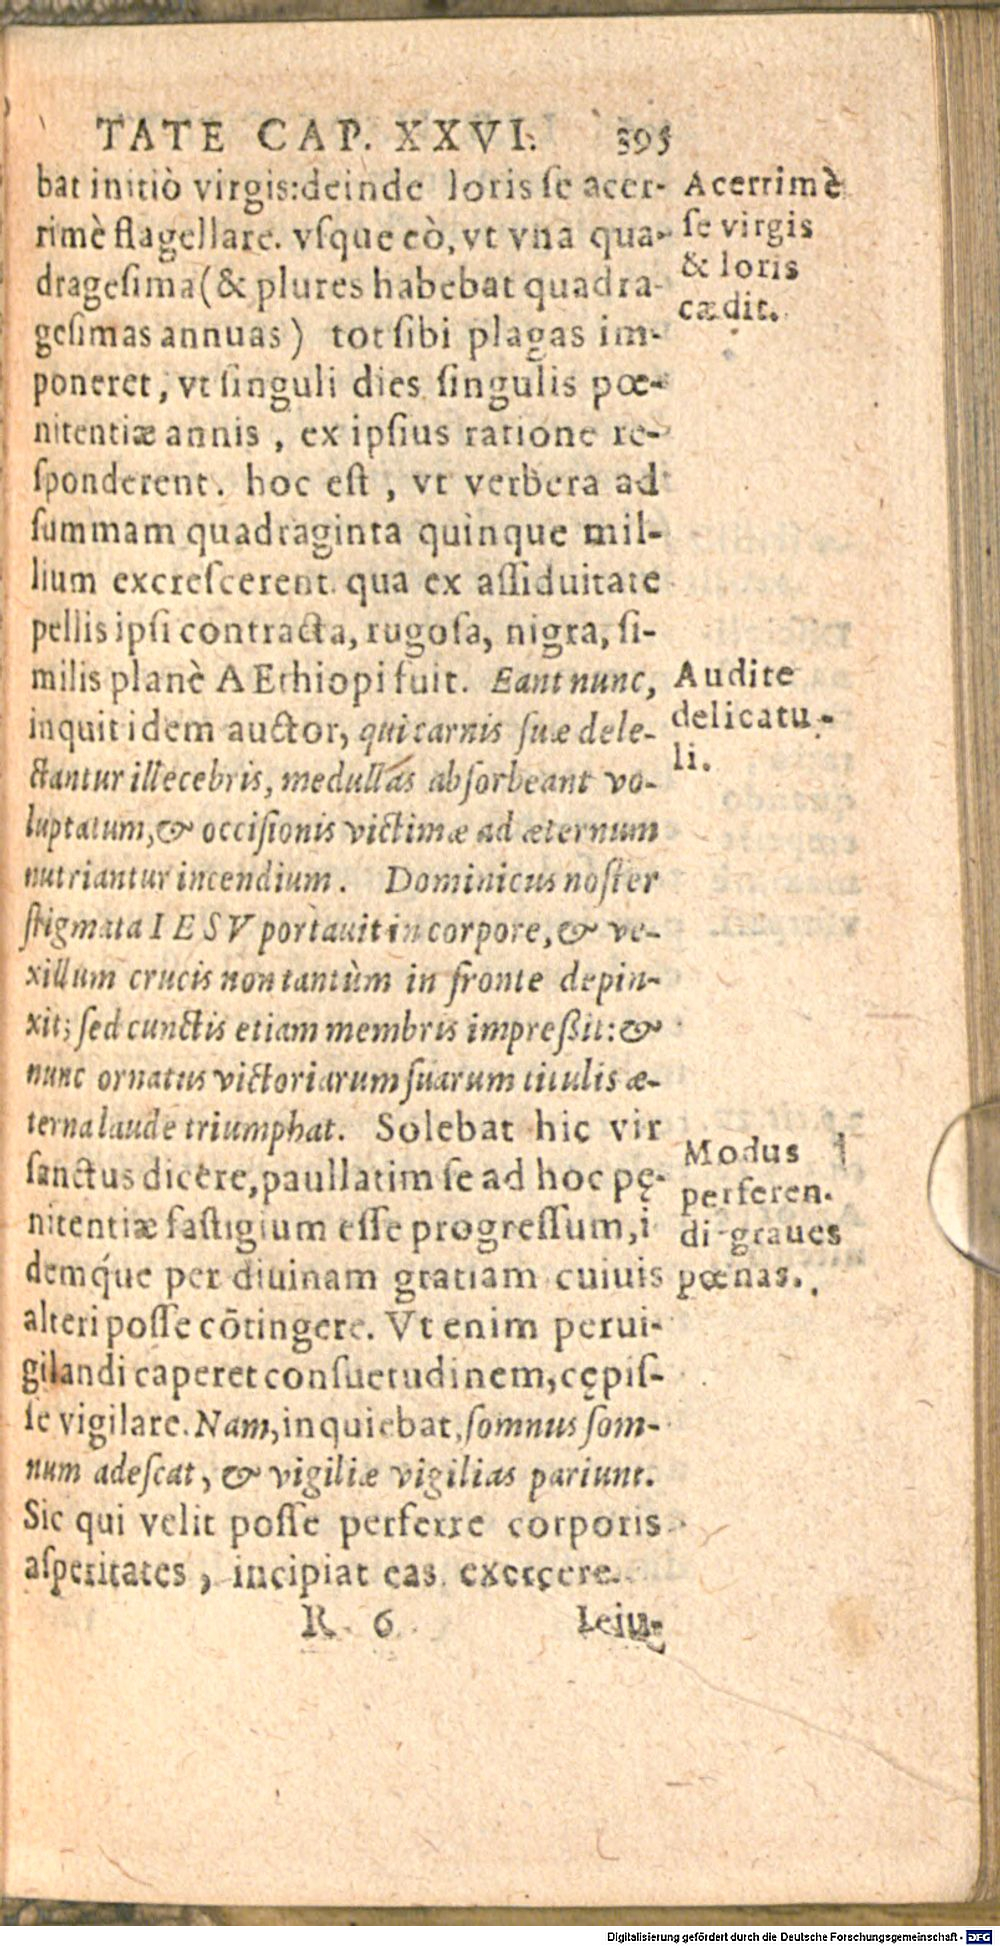 TATE CAP. XXVI. 395
bat initiò virgis: deinde loris se acer-
rimè flagellare. vsque eò, vt vna qua-
dragesima (& plures habebat quadra-
gesimas annuas) tot sibi plagas im-
poneret, vt singuli dies singulis pœ-
nitentiæ annis, ex ipsius ratione re-
sponderent. hoc est, vt verbera ad
summam quadraginta quinque mil-
lium excrescerent. qua ex assiduitate
pellis ipsi contracta, rugosa, nigra, si-
milis planè AEthiopi fuit. Eant nunc,
inquit idem auctor, qui carnis suæ dele-
ctantur illecebris, medullas absorbeant vo-
luptatum, & occisionis victimæ ad æternum
nutriantur incendium. Dominicus noster
stigmata IESV portauit in corpore, & ve-
xillum crucis non tantùm in fronte depin-
xit; sed cunctis etiam membris impreßit: &
nunc ornatus victoriarum suarum titulis æ-
terna laude triumphat. Solebat hic vir
sanctus dicere, paullatim se ad hoc pę-
nitentiæ fastigium esse progressum, i
demq́ue per diuinam gratiam cuiuis
alteri posse cōtingere. Vt enim perui-
gilandi caperet consuetudinem, cępis-
se vigilare. Nam, inquiebat, somnus som-
num adescat, & vigiliæ vigilias pariunt.
Sic qui velit posse perferre corporis
asperitates, incipiat eas exercere.
R 6 Leiu-
Acerrimè
se virgis
& loris
cædit.
Audite
delicatu-
li.
Modus
perferen-
di graues
pœnas.
Digitalisierung gefördert durch die Deutsche Forschungsgemeinschaft - DFG